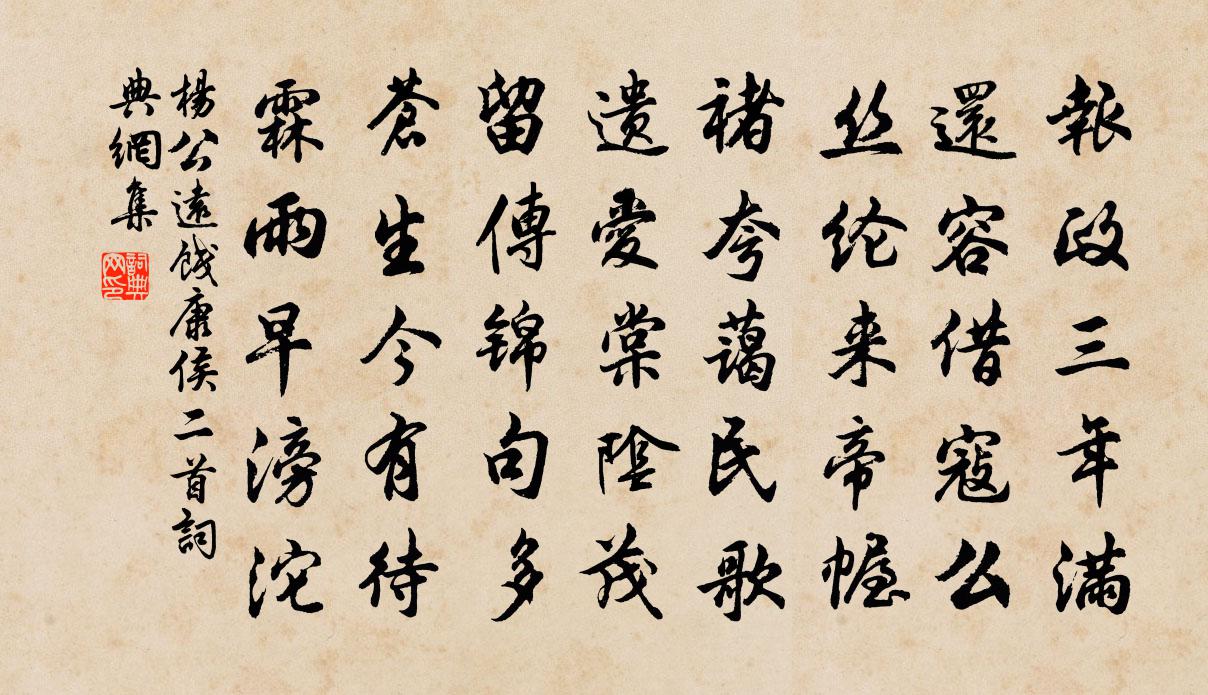 報政三年滿
還容借寇么
丝纶来帝幄
褚夸蔼民歌
遗愛棠陰茂
留傳锦句多
蒼生今有待
霖雨早滂沱
楊公遠餞康侯二首詞
典網集
詞典
网印